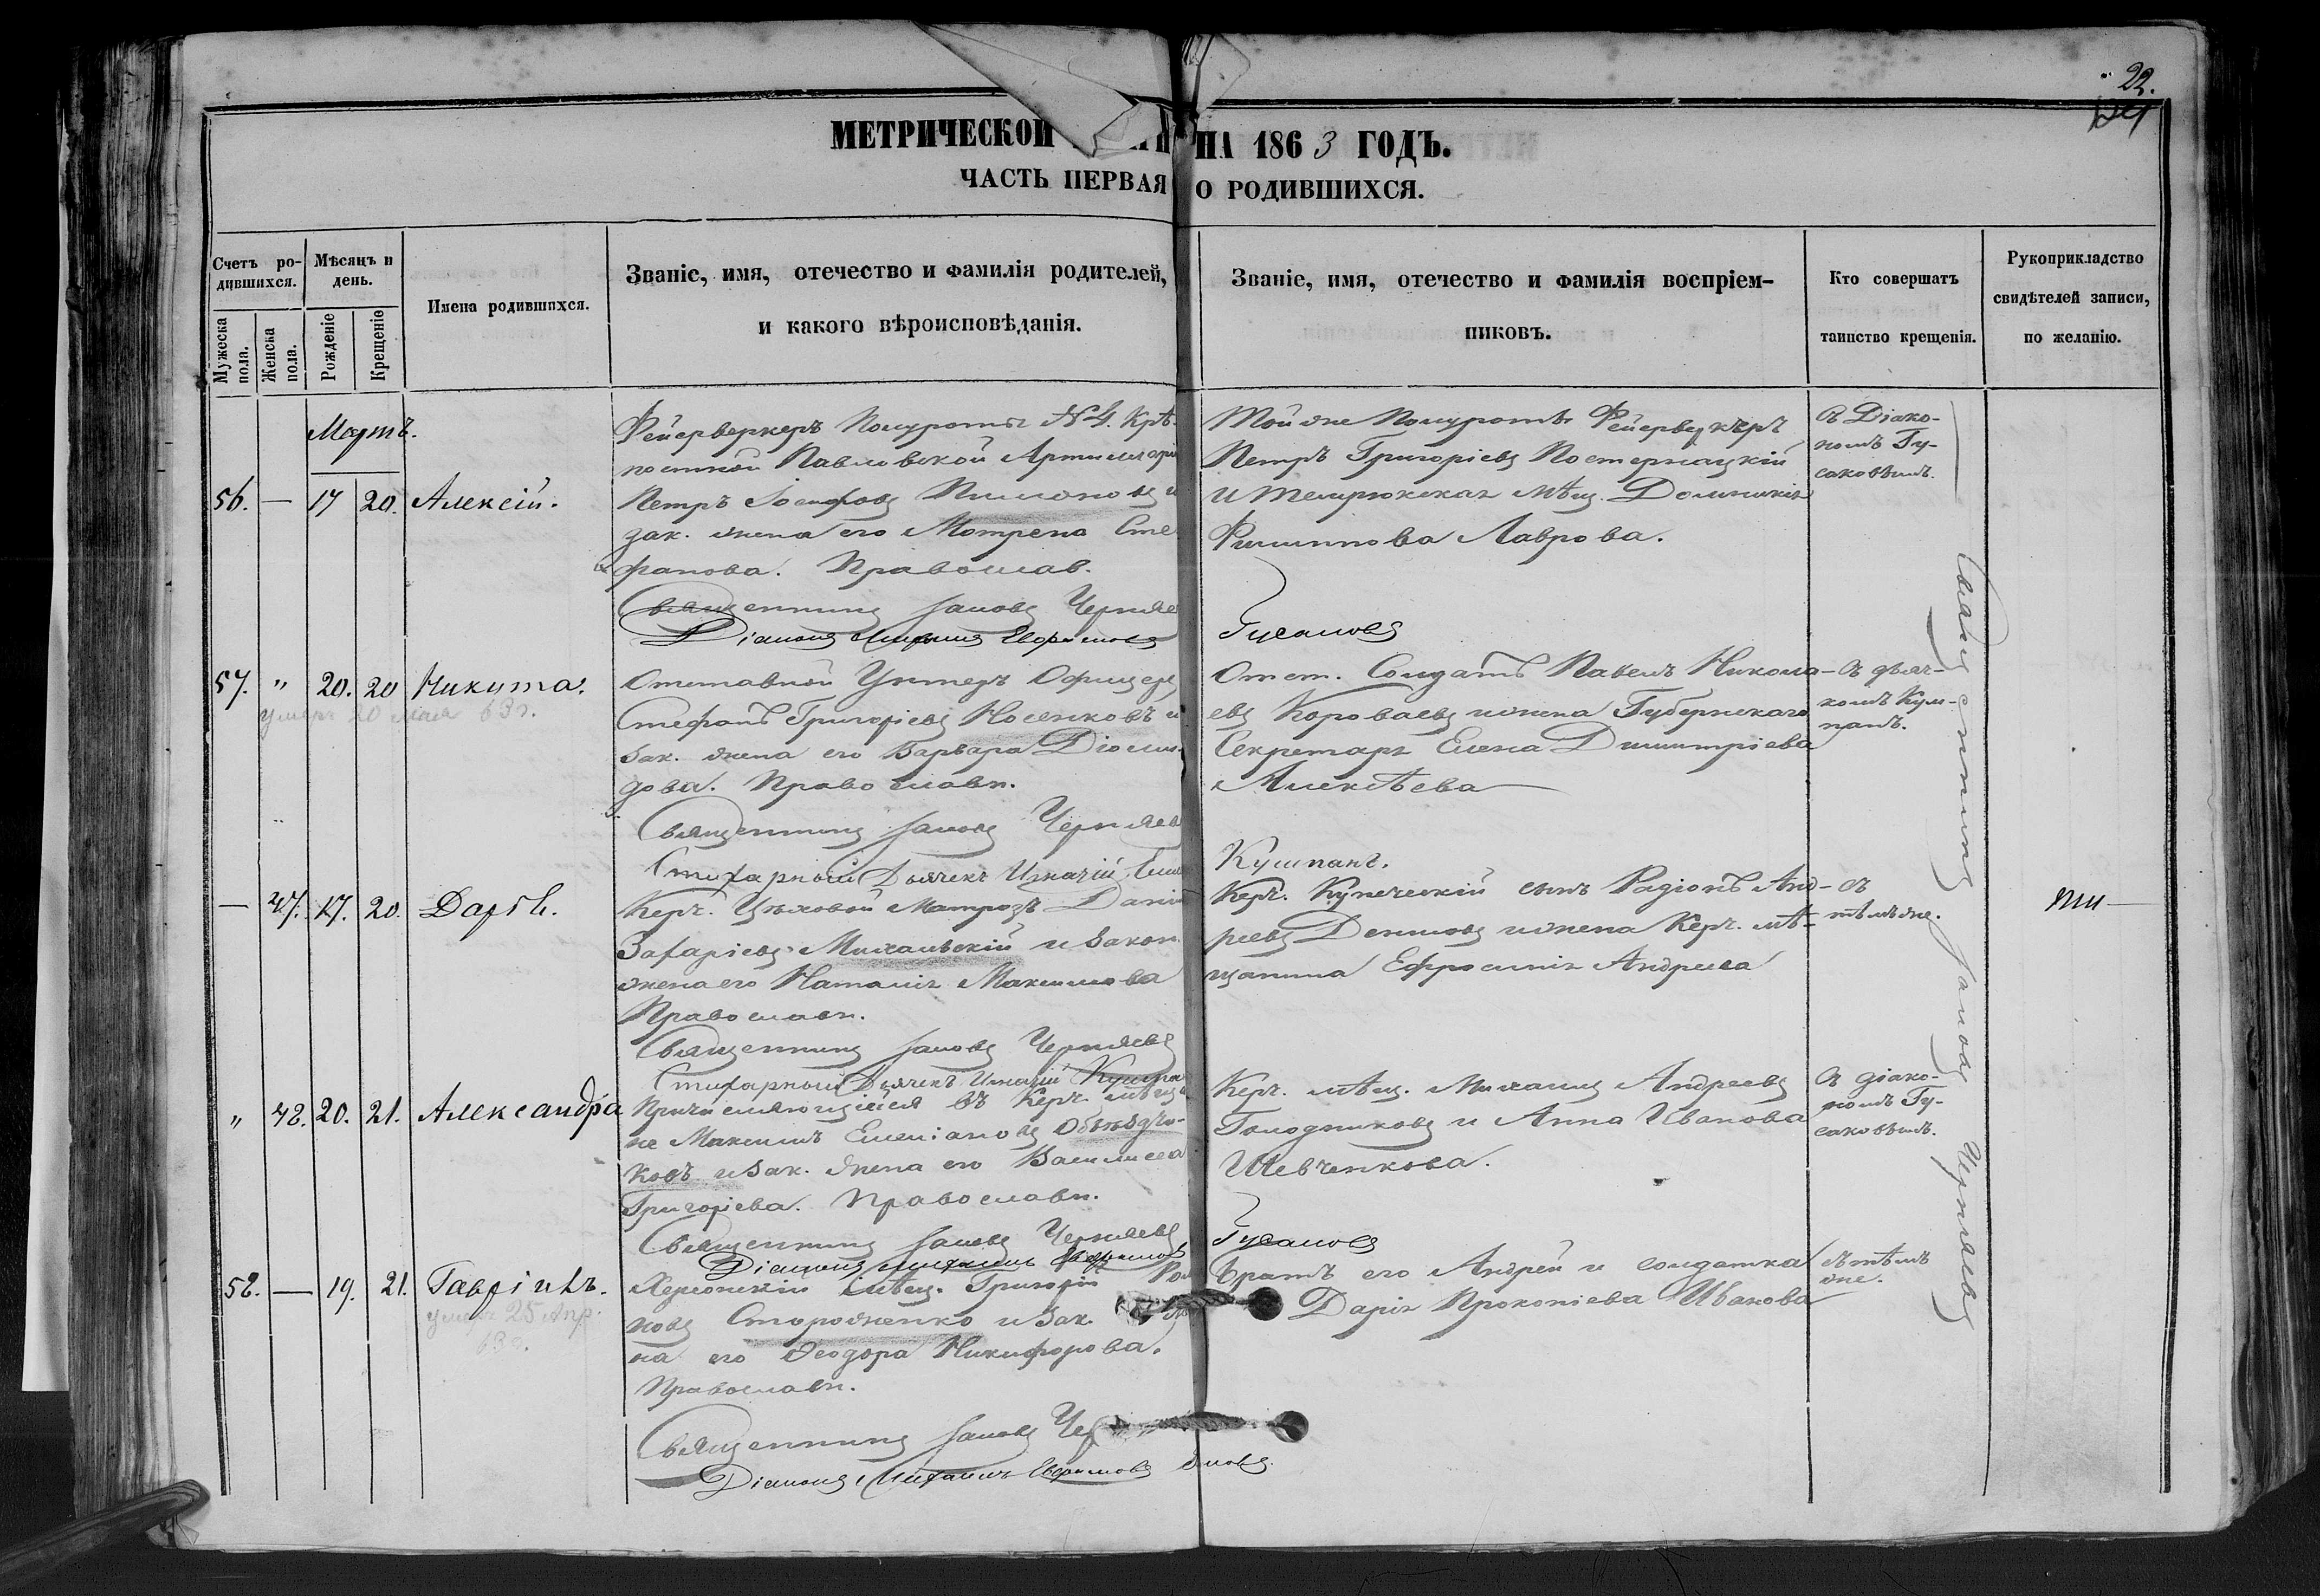 22.
МЕТРИЧЕСКОЙ НА 1863 ГОДЪ.
ЧАСТЬ ПЕРВАЯ О РОДИВШИХСЯ.
Счетъ ро-
дившихся.
Мужеска
пола.
Женска
пола.
Мѣсяцъ и
день.
Рожденіе
Крещеніе
Имена родившихся.
Званіе, имя, отечество и фамилія родителей,
и какого вѣроисповѣданія.
Званіе, имя, отечество и фамилія воспріем-
никовъ.
Кто совершатъ
таинство крещенія.
Рукоприкладство
свидѣтелей записи,
по желанію.
Мартъ.
56. — 17 20. Алексій.
Фейерверкеръ Полуроты № 4. Крѣ-
постной Павловской Артиллеріи
Петръ Іосифовъ и
зак. жена его Мотрена Сте
фанова. Православ.
Священникъ Іаковъ Черняев
Діаконъ
Той же Полуроты Фейерверкеръ
Петръ Григоріевъ Постернацкій
и Темрюкская мѣщ. Домникія
Филиппова Лаврова.
Гусаковъ
Съ Діако-
номъ Гу-
саковымъ.
57. " 20. 20 Никита.
умеръ 20 мая 63 г.
Отставной Унтеръ Офицеръ
Стефанъ Григоріевъ Носенковъ и
зак. жена его Варвара Діоми-
дова. Православн.
Священникъ Іаковъ Черняев
Стихарный Дьячекъ Игнатій
Отст. Солдатъ Павелъ Никола-
евъ Короваевъ и жена Губернскаго
Секретаря Елена Димитріева
Алексѣева
Кушпанъ.
Съ дьяч-
комъ Куш-
паномъ.
— 47. 17. 20. Дарья.
Керч. Цѣховой Матрозъ Данiил
Захаріевъ Михальскій и закон.
жена его Наталія Максимова
Православн.
Священникъ Іаковъ Черняевъ
Стихарный Дьячекъ Игнатій Кушпа
Керч. Купеческій сынъ Радіонъ Анд-
реевъ Денисовъ и жена Керч. мѣ-
щанина Ефросинія Андреева
съ
тѣмъ же.
" 48. 20. 21. Александра
Причисляющійся въ Керч. мѣща
не Максимъ Емеліановъ Объездчи-
ковъ и зак. жена его Василиса
Григоріева. Православн.
Священникъ Іаковъ Черняевъ
Діаконъ Михаилъ
Керч. мѣщ. Михаилъ Андреевъ
Голодниковъ и Анна Иванова
Шевченкова.
Гусаковъ
Съ діако-
номъ Гу-
саковымъ.
58. — 19. 21. Гавріилъ.
умеръ 25 Апр.
63 г.
Херсонскій мѣщ. Григорій Ром
новъ Стороженко и зак.
на его Ѳеодора Никифорова.
Православн.
Священникъ Іаковъ Чер
Діаконъ Михаилъ
Братъ его Андрей и солдатка
Дарія Прокопіева Иванова
съ тѣмъ
же.
Священникъ Іаковъ Черняевъ